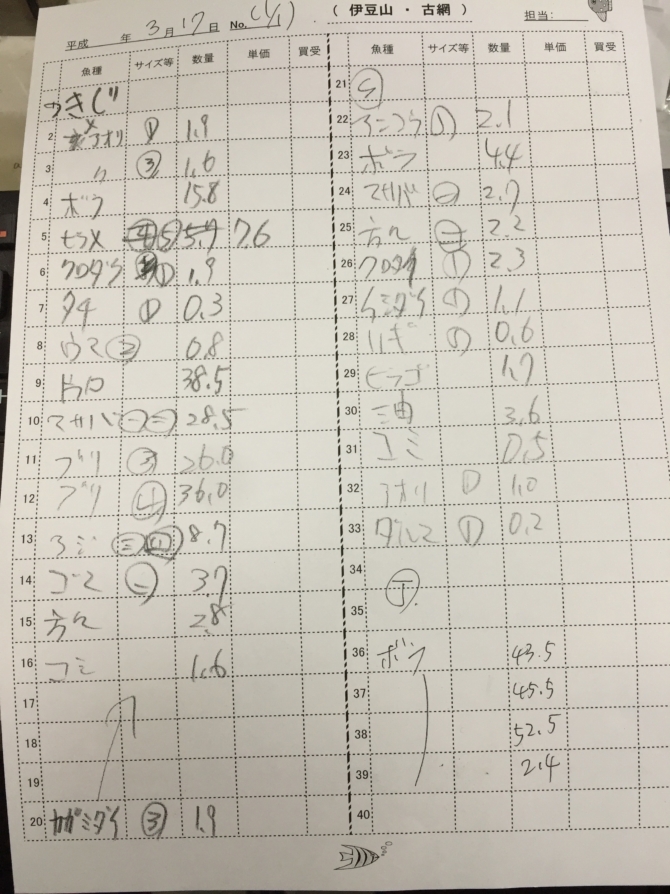 (伊豆山・古網)
平成 年 3月17日 No. (1/1) 担当:
魚種 サイズ等 数量 単価 買受
つきじ
2 メアオリ ① 1.9
3 〃 ③ 1.6
4 ボラ 15.8
5 ヒラメ 7.6
6 クロダイ ① 1.9
7 タチ ① 0.3
8 ウマ ② 0.8
9 38.5
10 マサバ ㊀ ㊁ 28.5
11 ブリ ③ 26.0
12 ブリ ④ 36.0
13 アジ ㊂ 8.7
14 ゴマ ㊀ 3.7
15 方々 2.8
16 コミ 1.6
17
18
19
20 カガミダイ ③ 1.9
魚種 サイズ等 数量 単価 買受
21
22 ① 2.1
23 ボラ 4.4
24 マサバ ㊀ 2.7
25 方々 ㊀ 2.2
26 クロダイ ① 2.3
27 ① 1.1
28 ① 0.6
29 ヒラゴ 1.7
30 三由 3.6
31 コミ 0.5
32 アオリ ① 1.0
33 ダルマ ① 0.2
34
35
36 ボラ 43.5
37 45.5
38 52.5
39 2.4
40